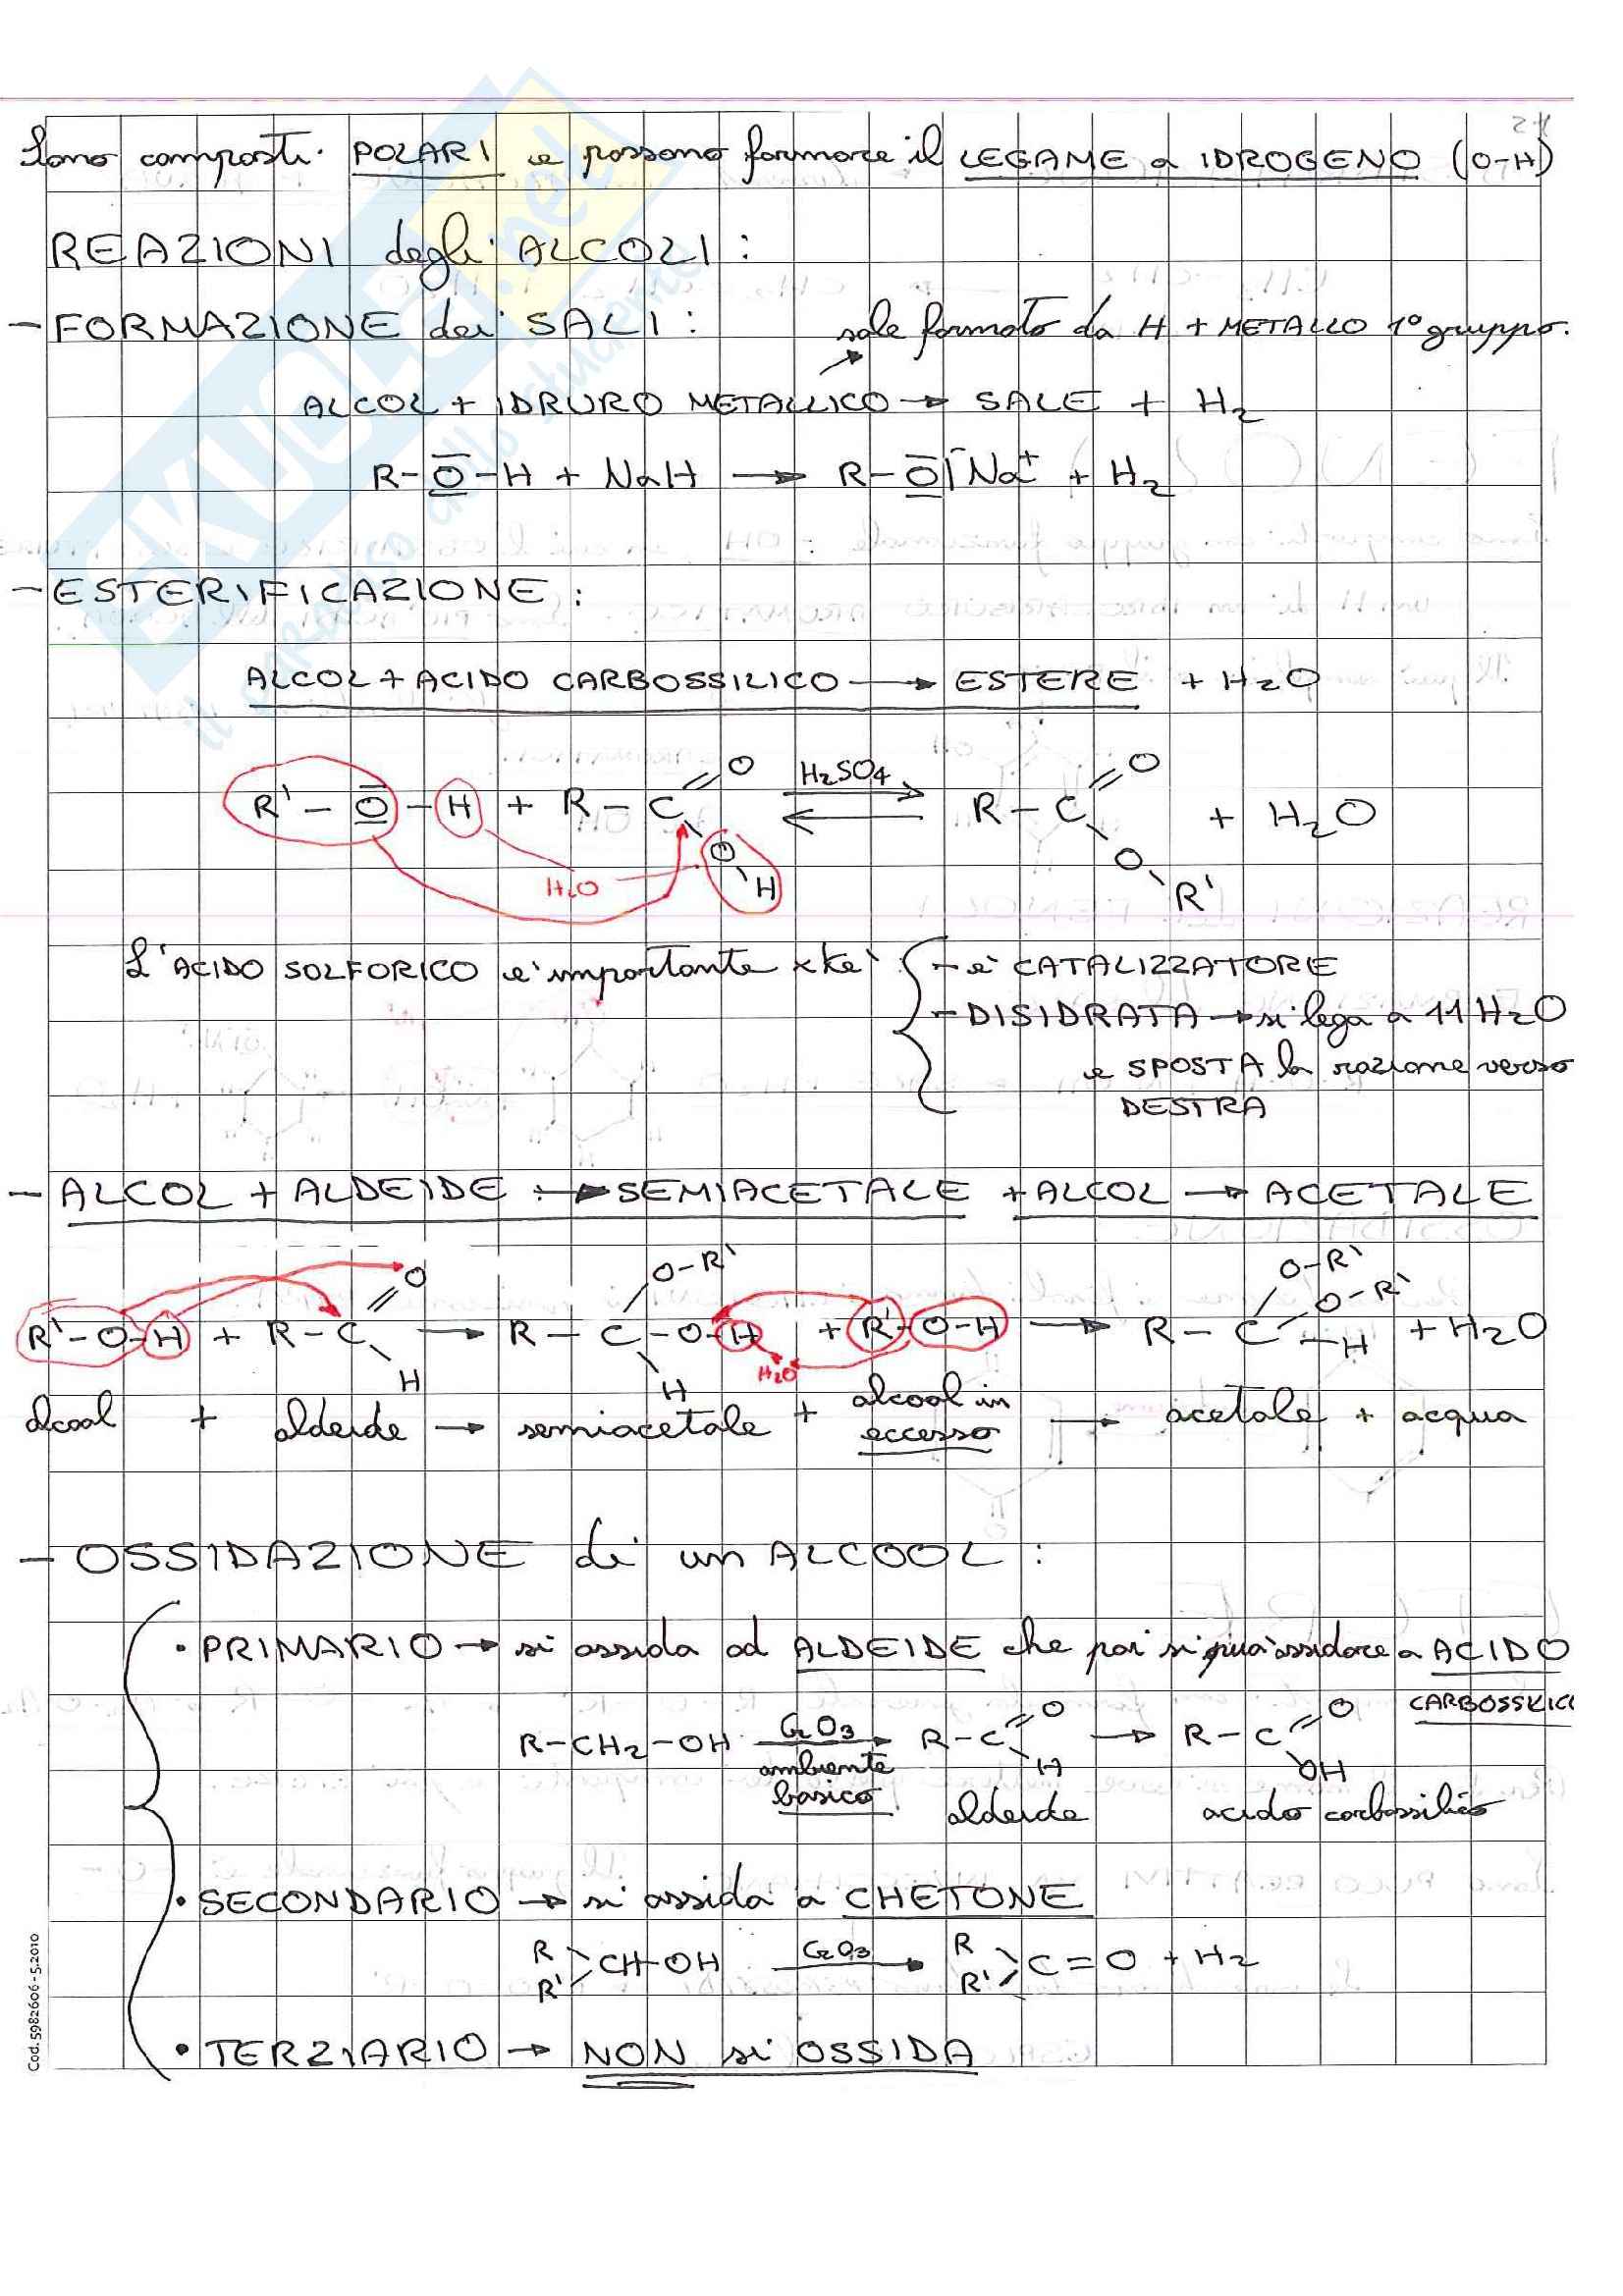 Sono composti POLARI e possono formare il LEGAME a IDROGENO (O-H)
REAZIONI degli ALCOLI :
- FORMAZIONE dei SALI : sale formato da H + METALLO 1° gruppo.
ALCOL + IDRURO METALLICO → SALE + H₂
R-O-H + NaH → R-O|⁻Na⁺ + H₂
- ESTERIFICAZIONE :
ALCOL + ACIDO CARBOSSILICO → ESTERE + H₂O
R' - O - H + R - C =O O H ⇄ H₂SO₄ R - C =O O R' + H₂O
H₂O
L'ACIDO SOLFORICO e' importante xke' - e' CATALIZZATORE
- DISIDRATA → si lega a 11 H₂O
e SPOSTA la razione verso
DESTRA
- ALCOL + ALDEIDE : → SEMIACETALE + ALCOL → ACETALE
R'-O-H + R-C =O H → R - C -O-H O-R' H + R'-O-H → R - C O-R' O-R' -H + H₂O
H₂O
alcool + aldeide → semiacetale + alcool in eccesso → acetale + acqua
- OSSIDAZIONE di un ALCOOL :
• PRIMARIO → si ossida ad ALDEIDE che poi si può ossidare a ACIDO
CARBOSSILICO
R-CH₂-OH CrO₃ → R-C =O H → R-C =O OH
ambiente
basico aldeide acido carbossilico
• SECONDARIO → si ossida a CHETONE
R R' CH-OH CrO₃ → R R' C=O + H₂
• TERZIARIO → NON si OSSIDA
Cod. 5982606 - 5.2010
SKUOLA.net
il paradiso dello studente